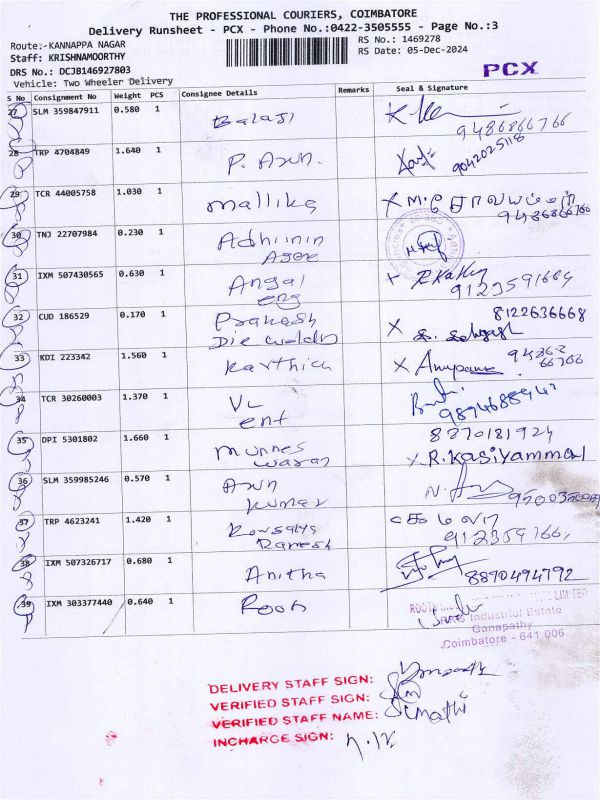 THE PROFESSIONAL COURIERS, COIMBATORE
Delivery Runsheet - PCX - Phone No.:0422-3505555 - Page No.:3
Route:- KANNAPPA NAGAR
RS No.: 1469278
Staff: KRISHNAMOORTHY
RS Date: 05-Dec-2024
DRS No.: DCJB146927803
PCX
Vehicle: Two Wheeler Delivery
S No Consignment No Weight PCS Consignee Details Remarks Seal & Signature
27 SLM 359847911 0.580 1 Balaji
9486866766
28 TRP 4704849 1.640 1 P. Arun.
9042025118
29 TCR 44005758 1.030 1 mallika
9486866766
30 TNJ 22707984 0.230 1
31 IXM 507430565 0.630 1 Angal
eng
32 CUD 186529 0.170 1 Prakash 8122636668
Die
33 KDI 223342 1.560 1 Karthick Anupama
34 TCR 30260003 1.370 1 VL
ent
35 DPI 5301802 1.660 1 munnes 8870181924
waran R.Kasiyammal
36 SLM 359985246 0.570 1 Arun
kumar
37 TRP 4623241 1.420 1 Kowsalya
Ramesh
38 IXM 507326717 0.680 1 Anitha 8890494792
39 IXM 303377440 0.640 1 Roots
Industrial Estate
Ganapathy
Coimbatore - 641 006
DELIVERY STAFF SIGN:
VERIFIED STAFF SIGN:
VERIFIED STAFF NAME: Sumathi
INCHARGE SIGN: